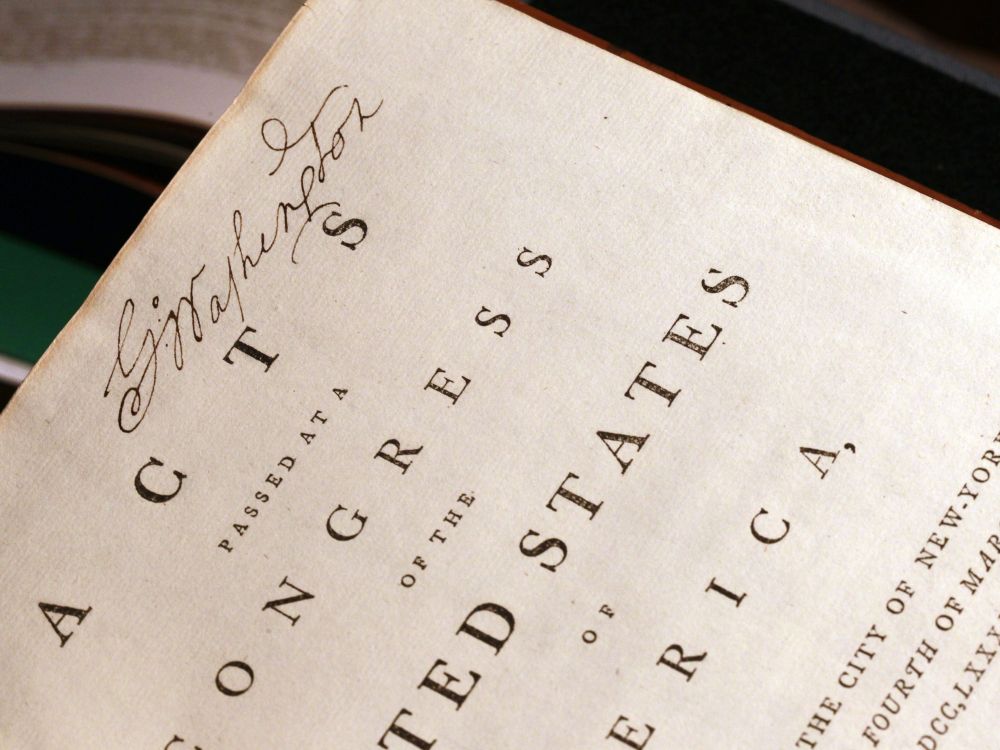 G:Washington
ACTS
PASSED AT A
CONGRESS
OF THE
TED STATES
OF
ERICA,
THE CITY OF NEW-YOR
FOURTH OF MAR
DCC,LXXX